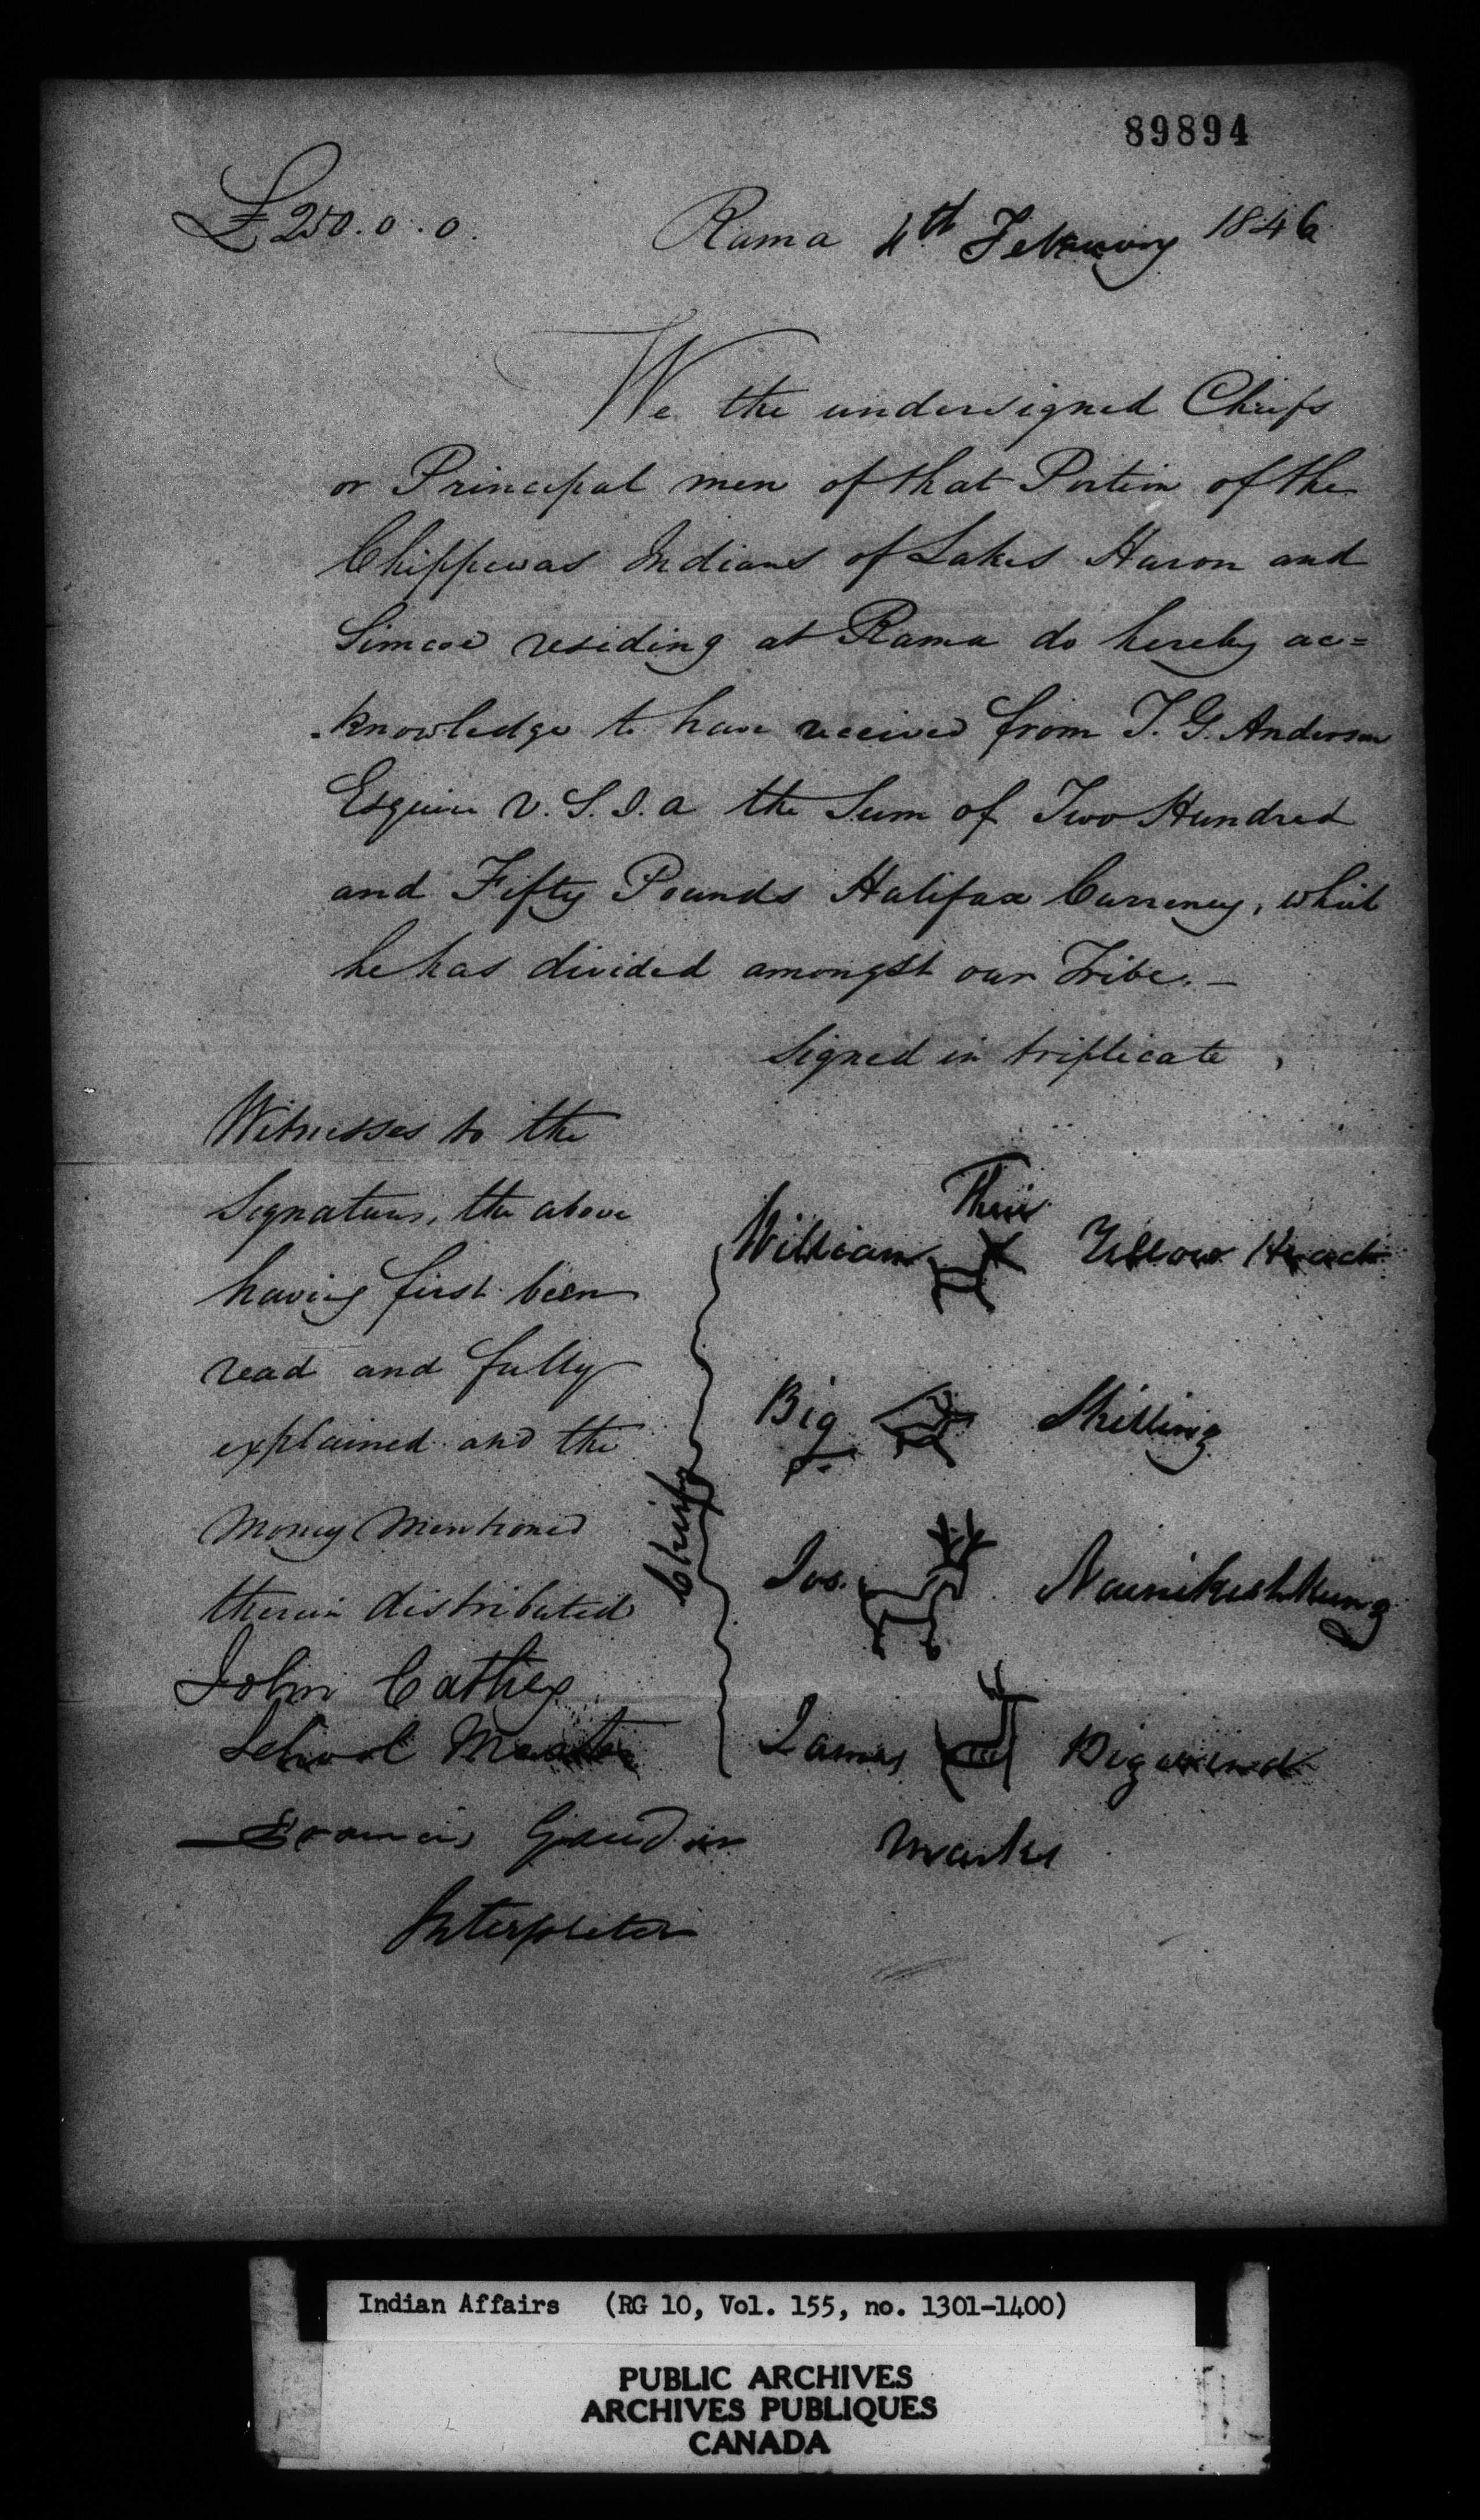 89894
£250.0.0. Rama 4th February 1846
We the undersigned Chiefs
or Principal men of that Portion of the
Chippewas Indians of Lakes Huron and
Simcoe residing at Rama do hereby ac=
knowledge to have received from T. G. Anderson
Esquire V. S. I. a the Sum of Two Hundred
and Fifty Pounds Halifax Currency, which
he has divided amongst our Tribe. —
Signed in triplicate
Witnesses to the
Signatures, the above
having first been
read and fully
explained and the
Money Mentioned
therein distributed
John Cathey
School Master
Francis Gaudin
Interpreter
Chiefs
Their
William Yellow Head
Big Shilling
Jos. Nainikishkung
James Bigwind
Marks
Indian Affairs (RG 10, Vol. 155, no. 1301-1400)
PUBLIC ARCHIVES
ARCHIVES PUBLIQUES
CANADA